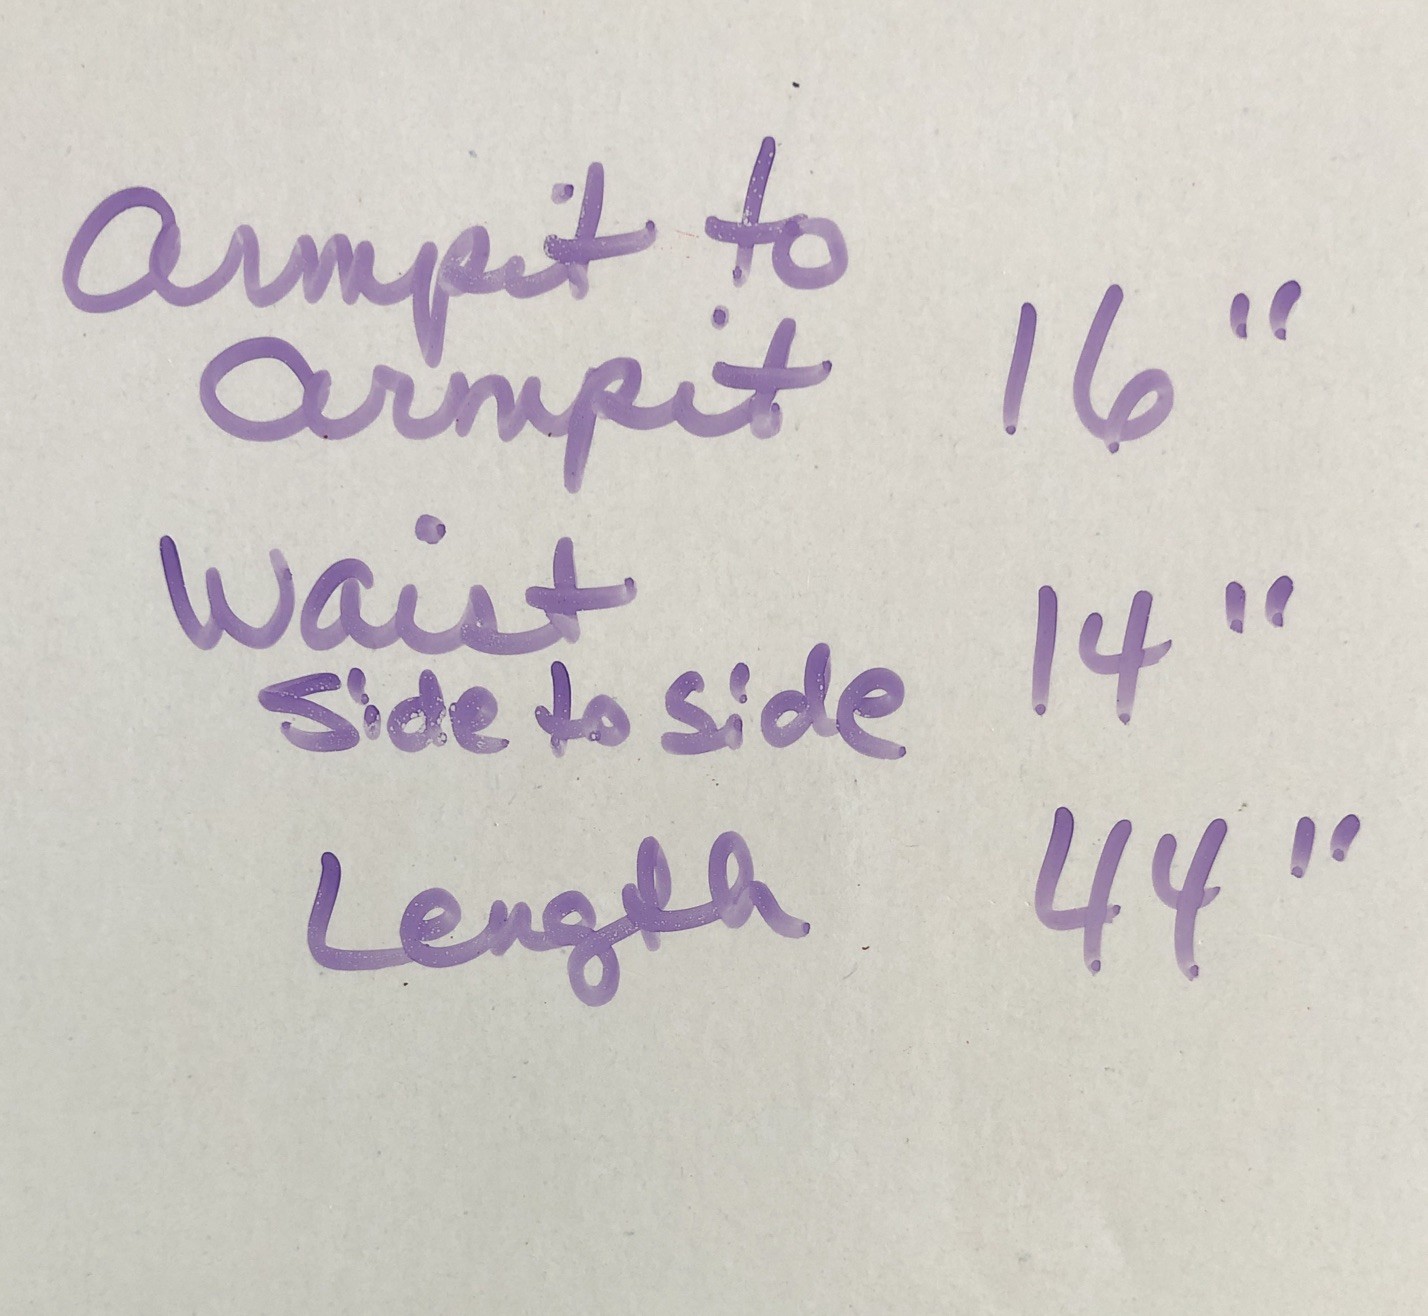 Armpit to
Armpit 16"
Waist 14"
Side to side
Length 44"